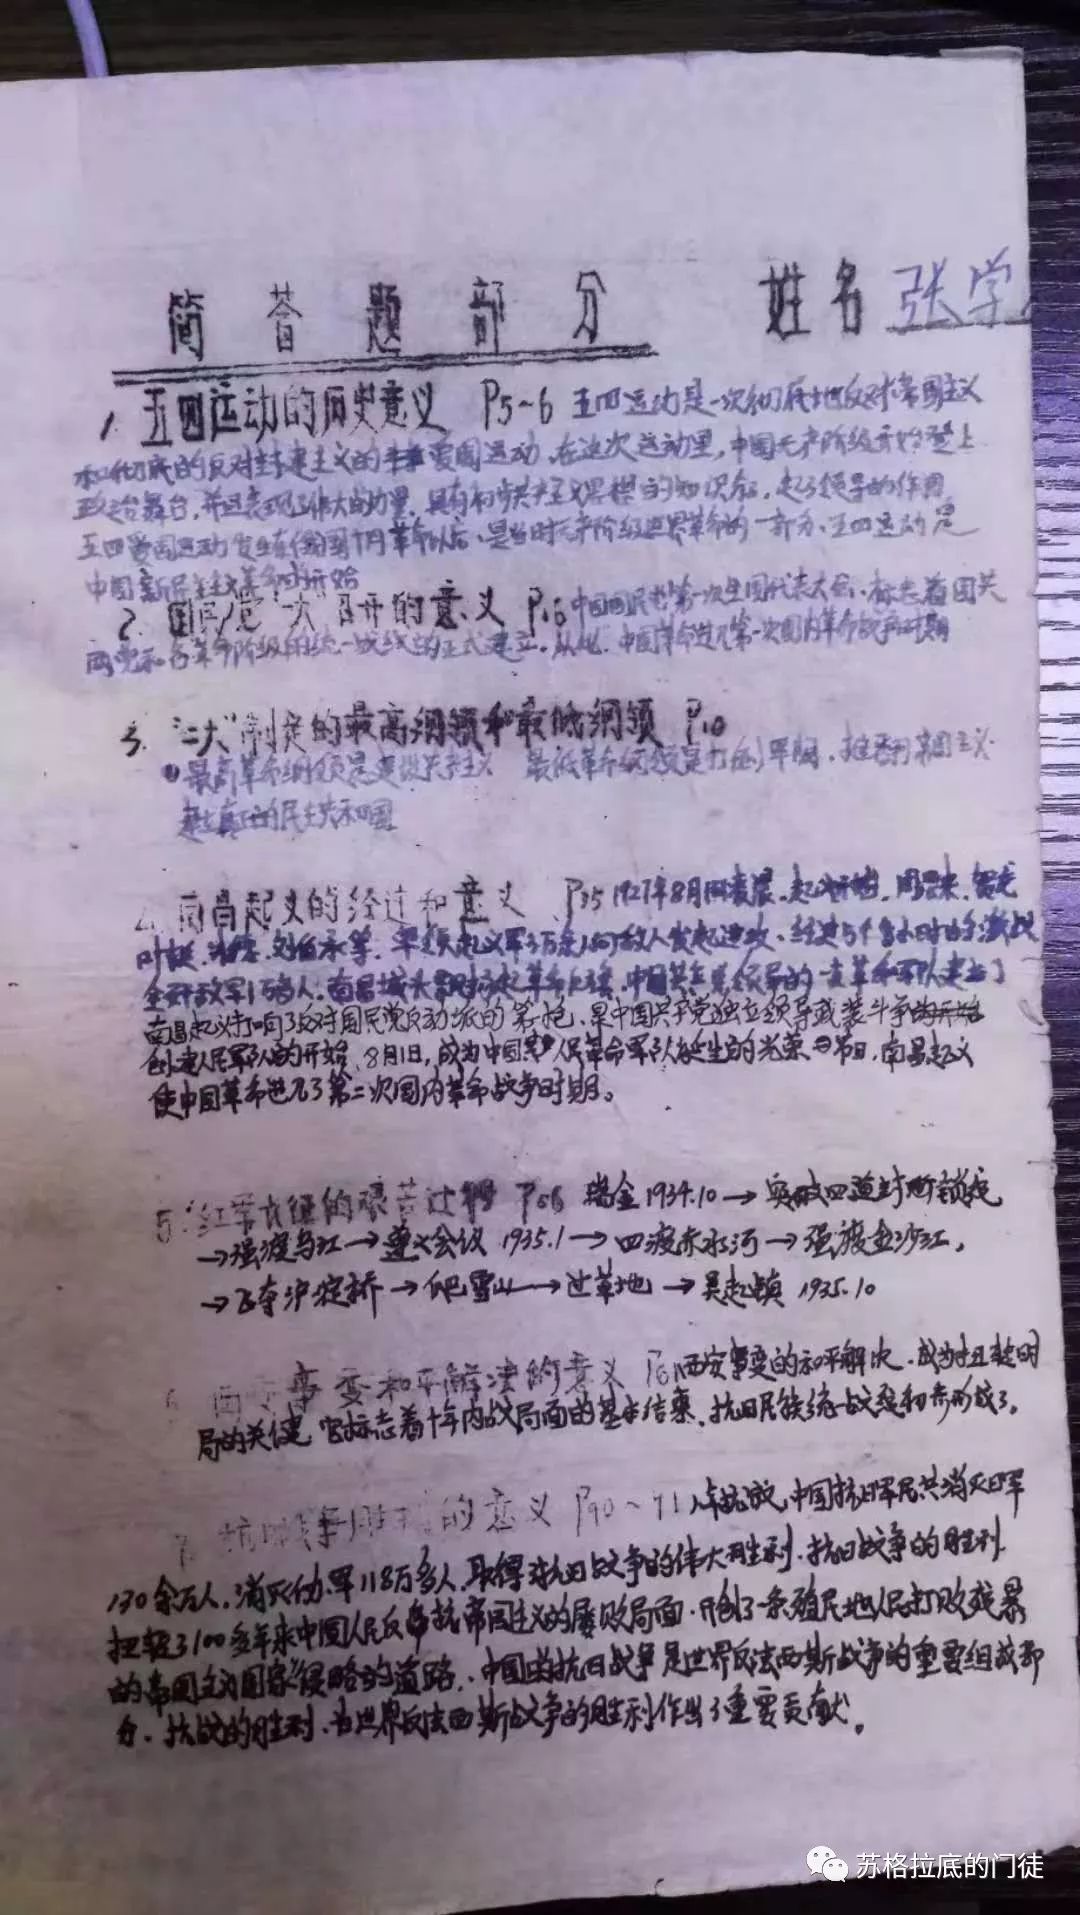 简答题部分 姓名 张学
1. 五四运动的历史意义 P5~6 五四运动是一次彻底地反对帝国主义
和彻底的反对封建主义的爱国运动。在这次运动里，中国无产阶级开始登上
政治舞台，并且表现了伟大的力量。具有初步共产主义思想的知识分子，起了领导的作用。
五四爱国运动发生在俄国十月革命以后，是当时无产阶级世界革命的一部分，五四运动是
中国新民主主义革命的开始
2. 国民党"一大"召开的意义 P16 中国国民党第一次全国代表大会，标志着国共
两党和各革命阶级的统一战线的正式建立。从此，中国革命进入第一次国内革命战争时期
3. "二大"制定的最高纲领和最低纲领 P10
最高革命纲领是建设共产主义 最低革命纲领是打倒军阀，推翻帝国主义
建立真正的民主共和国
4. 南昌起义的经过和意义 P35 1927年8月1日凌晨，起义开始，周恩来，贺龙
叶挺，朱德，刘伯承等，率领起义军2万余人向敌人发起进攻，经过5个多小时的激战
全歼敌军1万多人，南昌城头飘扬起革命红旗，中国共产党领导的一支革命军队建立了
南昌起义打响了反对国民党反动派的第一枪，是中国共产党独立领导武装斗争
创建人民军队的开始，8月1日，成为中国人民革命军队诞生的光荣节日，南昌起义
使中国革命进入了第二次国内革命战争时期。
5. 红军长征的艰苦过程 P56 瑞金1934.10→突破四道封锁线
→强渡乌江→遵义会议 1935.1→四渡赤水河→强渡金沙江，
→飞夺泸定桥→爬雪山→过草地→吴起镇 1935.10
西安事变和平解决的意义 西安事变的和平解决，成为扭转时
局的关键 它标志着十年内战局面的基本结束，抗日民族统一战线初步形成了。
抗日战争胜利的意义 P90~91 八年抗战，中国抗日军民共消灭日军
130余万人，消灭伪军118万多人，取得抗日战争的伟大胜利，抗日战争的胜利
扭转了100多年来中国人民反抗帝国主义的屡败局面，开创了一条殖民地人民打败残暴
的帝国主义国家侵略的道路，中国的抗日战争是世界反法西斯战争的重要组成部
分，抗战的胜利，为世界反法西斯战争的胜利作出了重要贡献。
苏格拉底的门徒